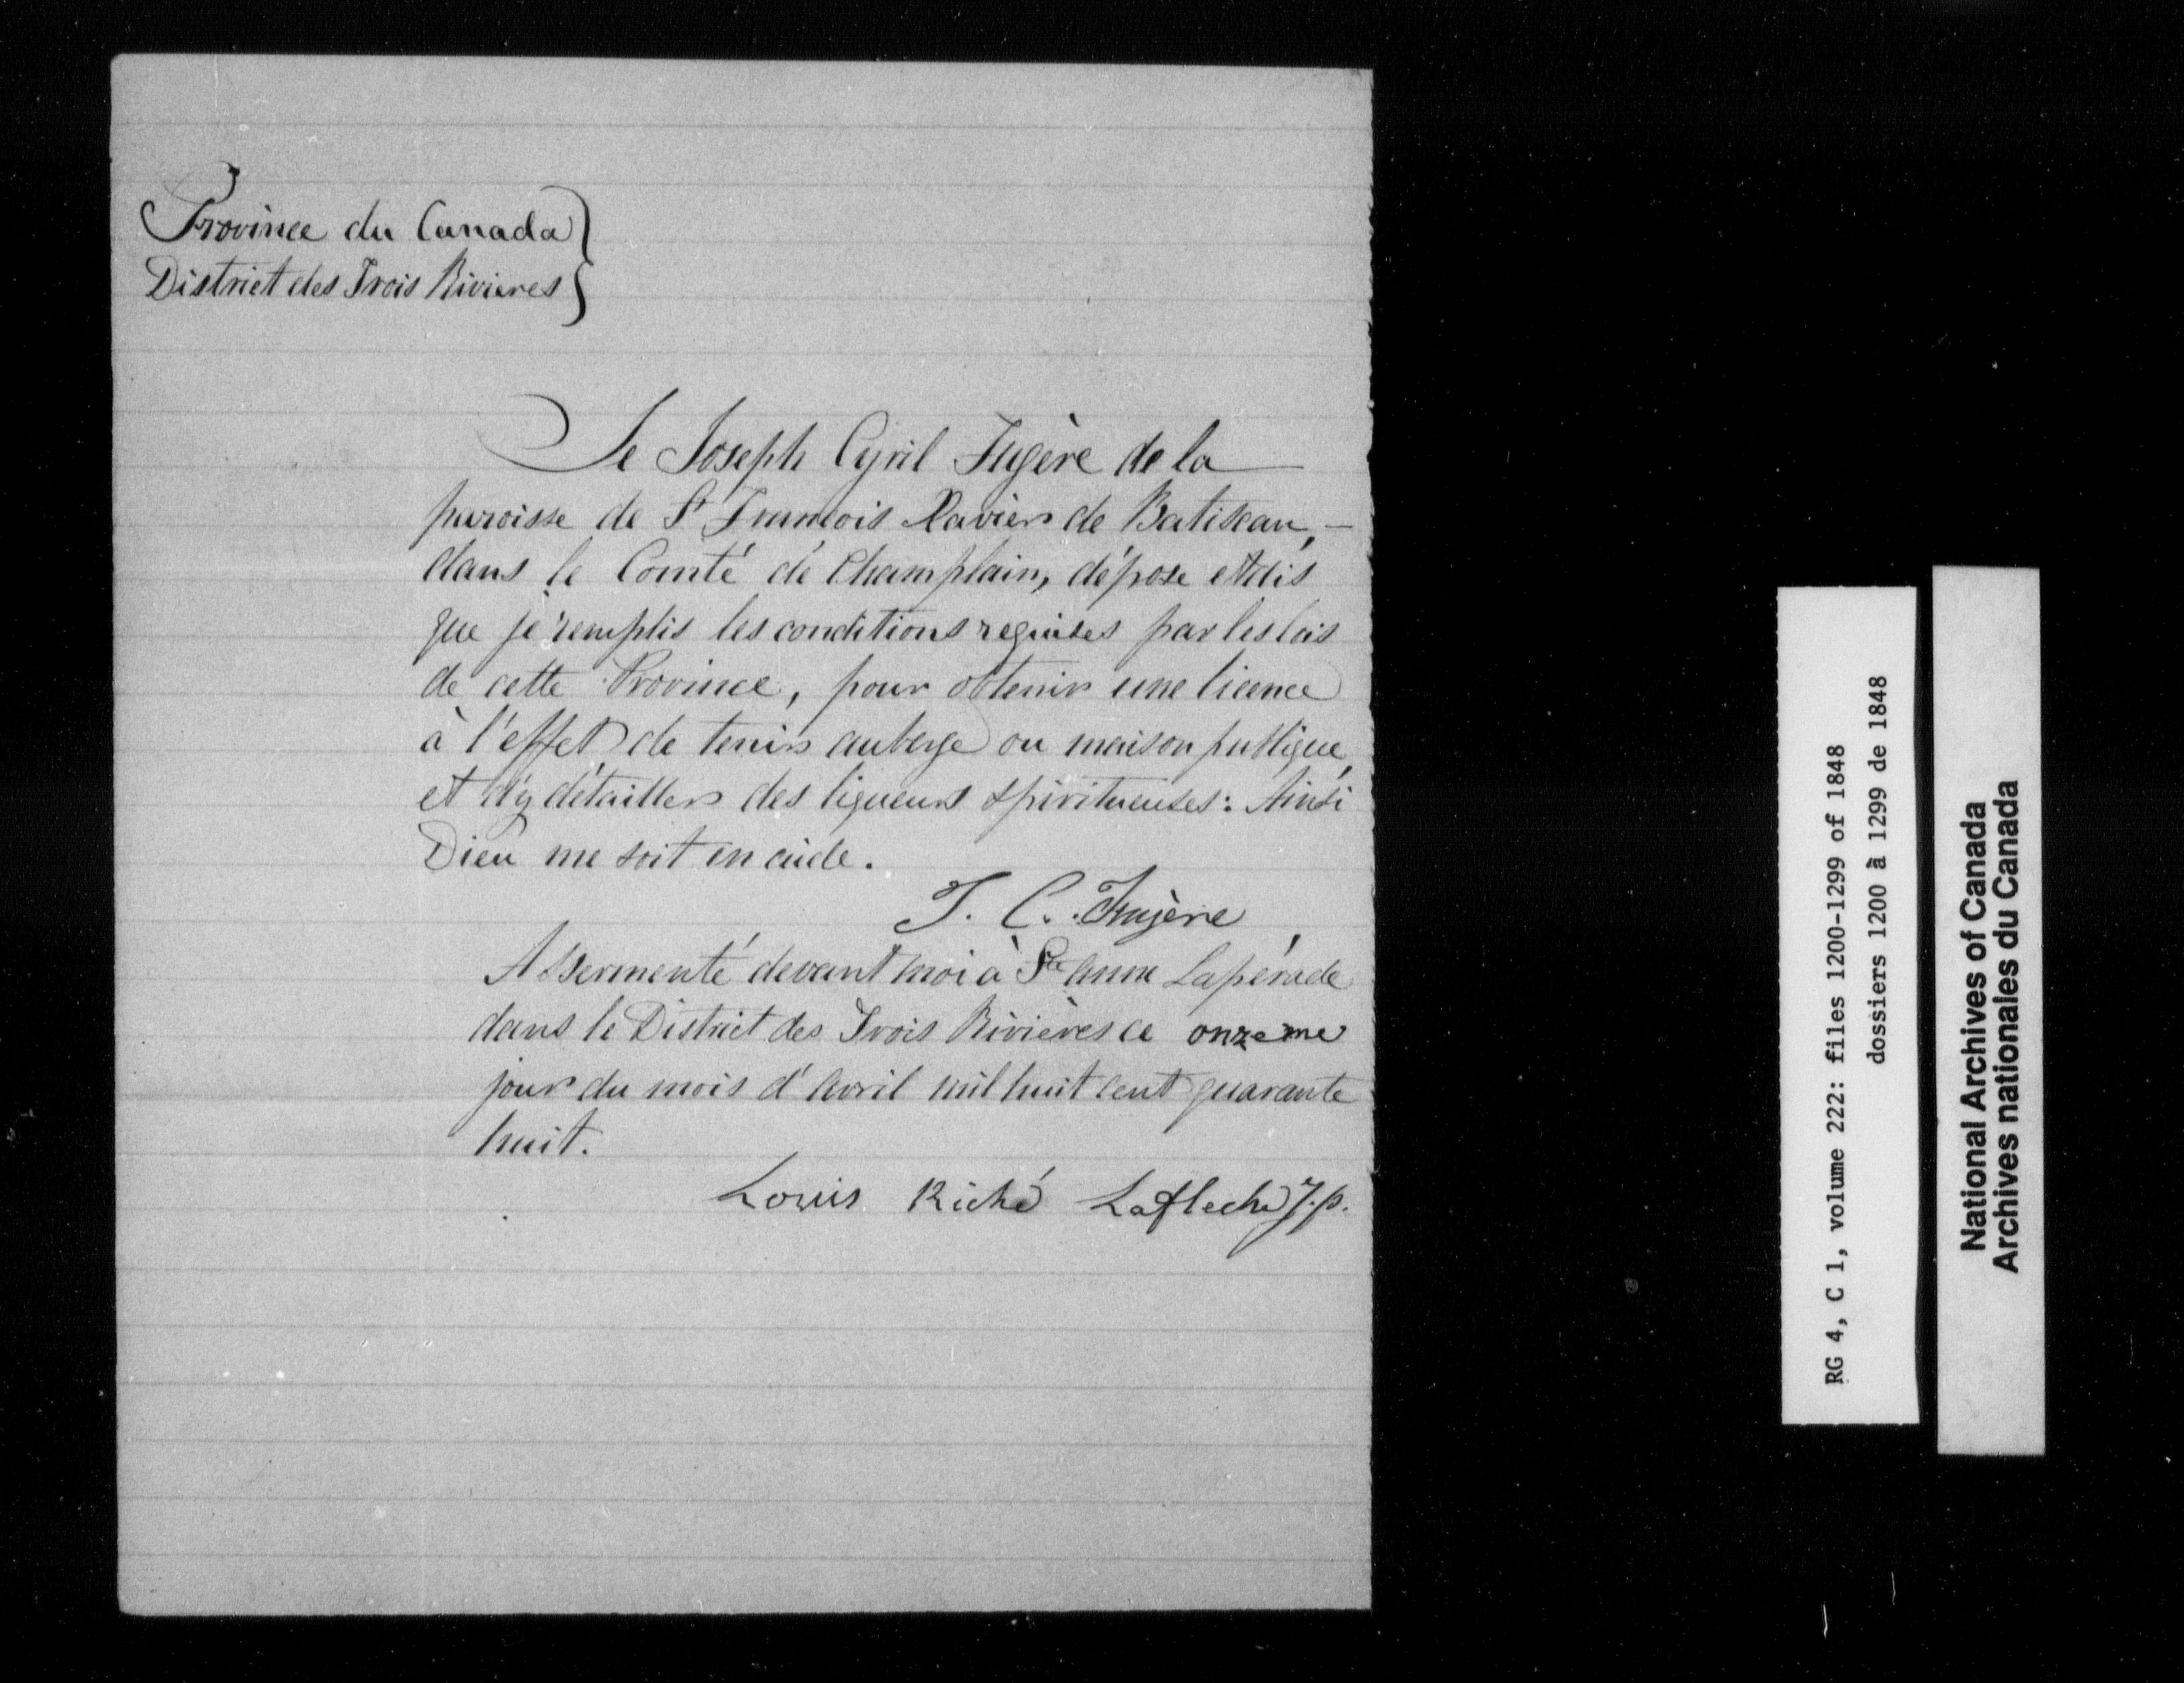 Province du Canada
District des Trois Rivieres
Je Joseph Cyril Fugère de la
paroisse de St François Xavier de Batiscan,
dans le Comté de Champlain, dépose et dis
que je remplis les conditions requises par les lois
de cette Province, pour obtenir une licence
à l'effet de tenir auberge ou maison publique,
et d'y détailler des liqueurs spiritueuses: Ainsi
Dieu me soit en aide.
J. C. Fugère
Assermenté devant moi à Ste Anne Lapérade
dans le District des Trois Rivières ce onzeme
jour du mois d'avril mil huit cent quarante
huit.
Louis Riché Lafleche J.p.
RG 4, C 1, volume 222: files 1200-1299 of 1848
dossiers 1200 à 1299 de 1848
National Archives of Canada
Archives nationales du Canada